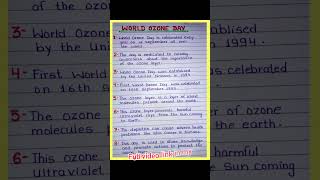 WORLD OZONE DAY
1- World Ozone Day is celebrated every
year on 16 September all over
the world.
2- The day is dedicated to
awareness about the importance
of the ozone layer.
3- World Ozone Day was established
by the United Nations in 1994.
4- First World Ozone Day was celebrated
on 16th September 1995.
5- The ozone layer is a layer of ozone
molecules present around the earth.
6- This ozone layer prevents harmful
ultraviolet rays from the Sun coming
to Earth.
7- depletion can cause severe health
problems like skin cancer
8- This day is used to share knowledge
and promote actions to protect the
Full video link
of the ozone
3- World Ozone
by the Unite
in 1994.
4- First World
s celebrated
on 16th S
5- The ozone
of ozone
molecules
the earth.
6- This ozone
harmful
ultraviolet
e Sun coming